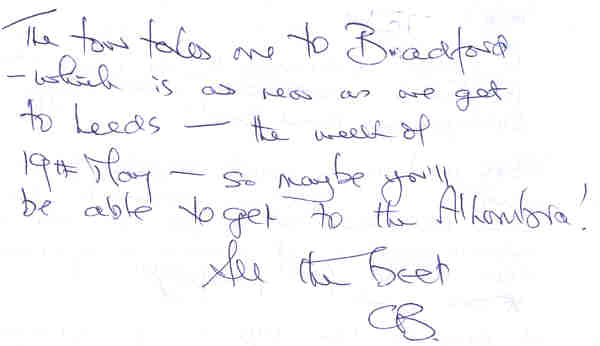 The tour takes me to Bradford
– which is as near as we get
to Leeds — the week of
19th May — so maybe you'll
be able to get to the Alhambra!
All the Best
CB.